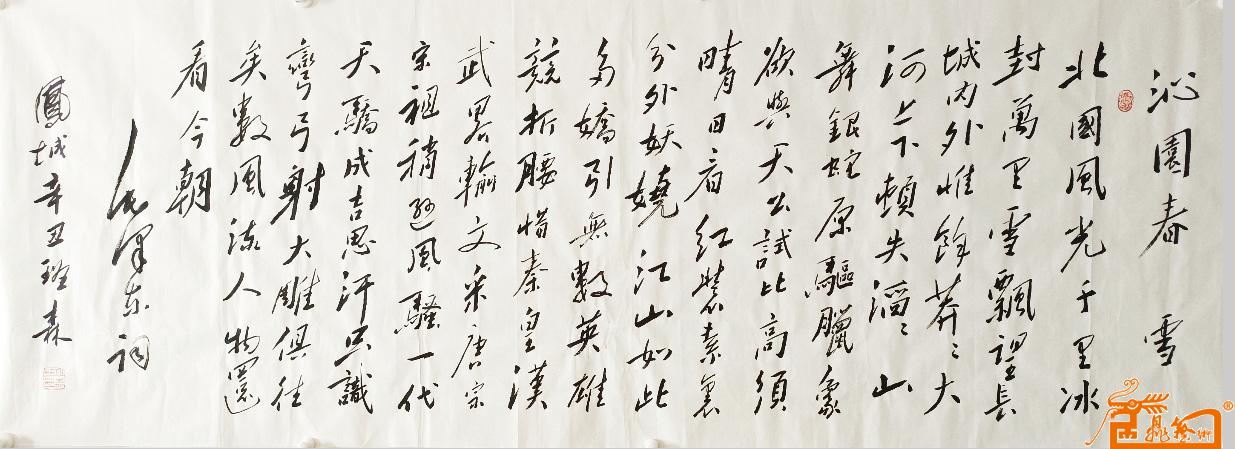 沁園春 雪
北國風光千里冰
封萬里雪飄望長
城内外惟餘莽〻大
河上下頓失滔〻山
舞銀蛇原驅臘象
欲與天公試比高須
晴日看紅裝素裹
分外妖嬈江山如此
多嬌引無數英雄
競折腰惜秦皇漢
武畧輸文采唐宗
宋祖稍遜風騷一代
天驕成吉思汗只識
彎弓射大雕俱往
矣數風流人物還
看今朝
毛澤东詞
鳳城辛丑森